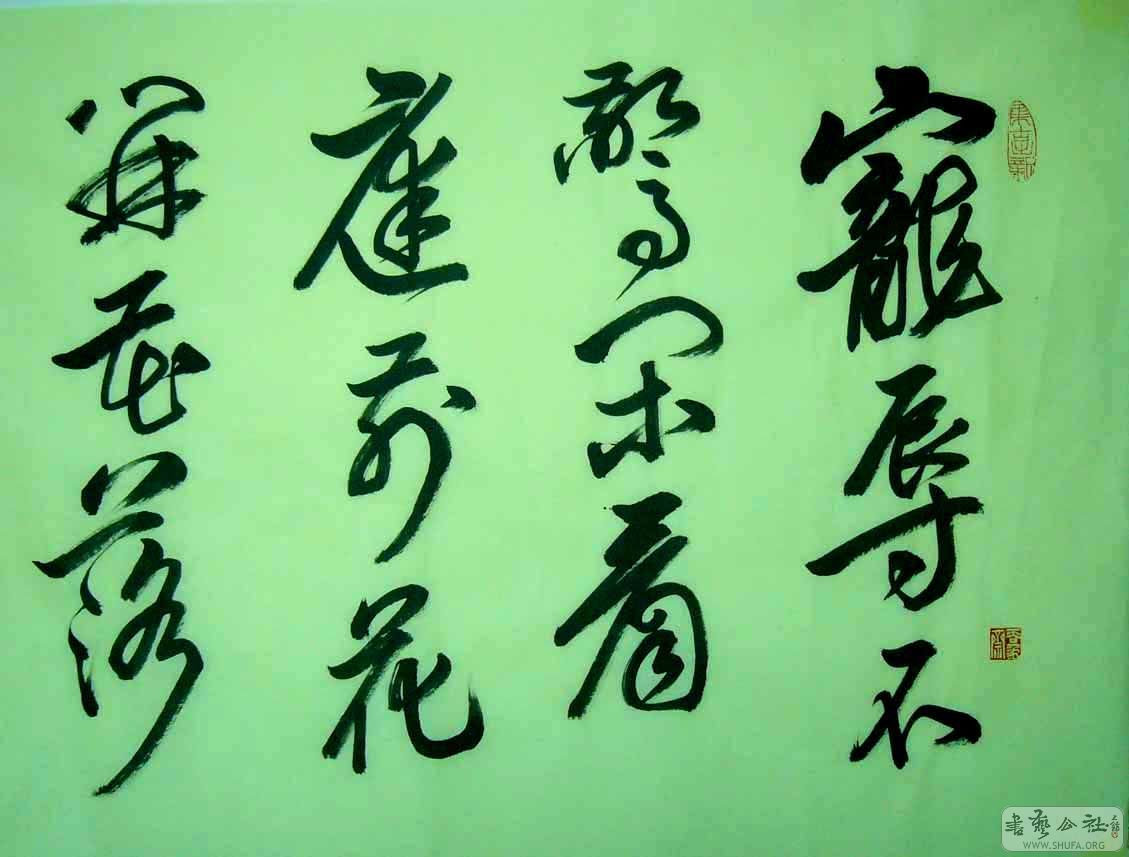 寵辱不
驚閑看
庭前花
開花落
書藝公社
WWW.SHUFA.ORG